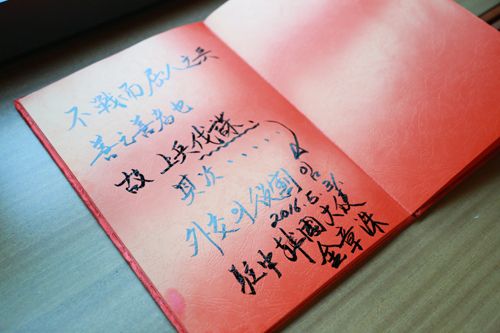 不戰而屈人之兵
善之善者也
故 上兵伐謀、
其次......
외交의 임
2016. 5. 31
駐中韓國大使
金章洙